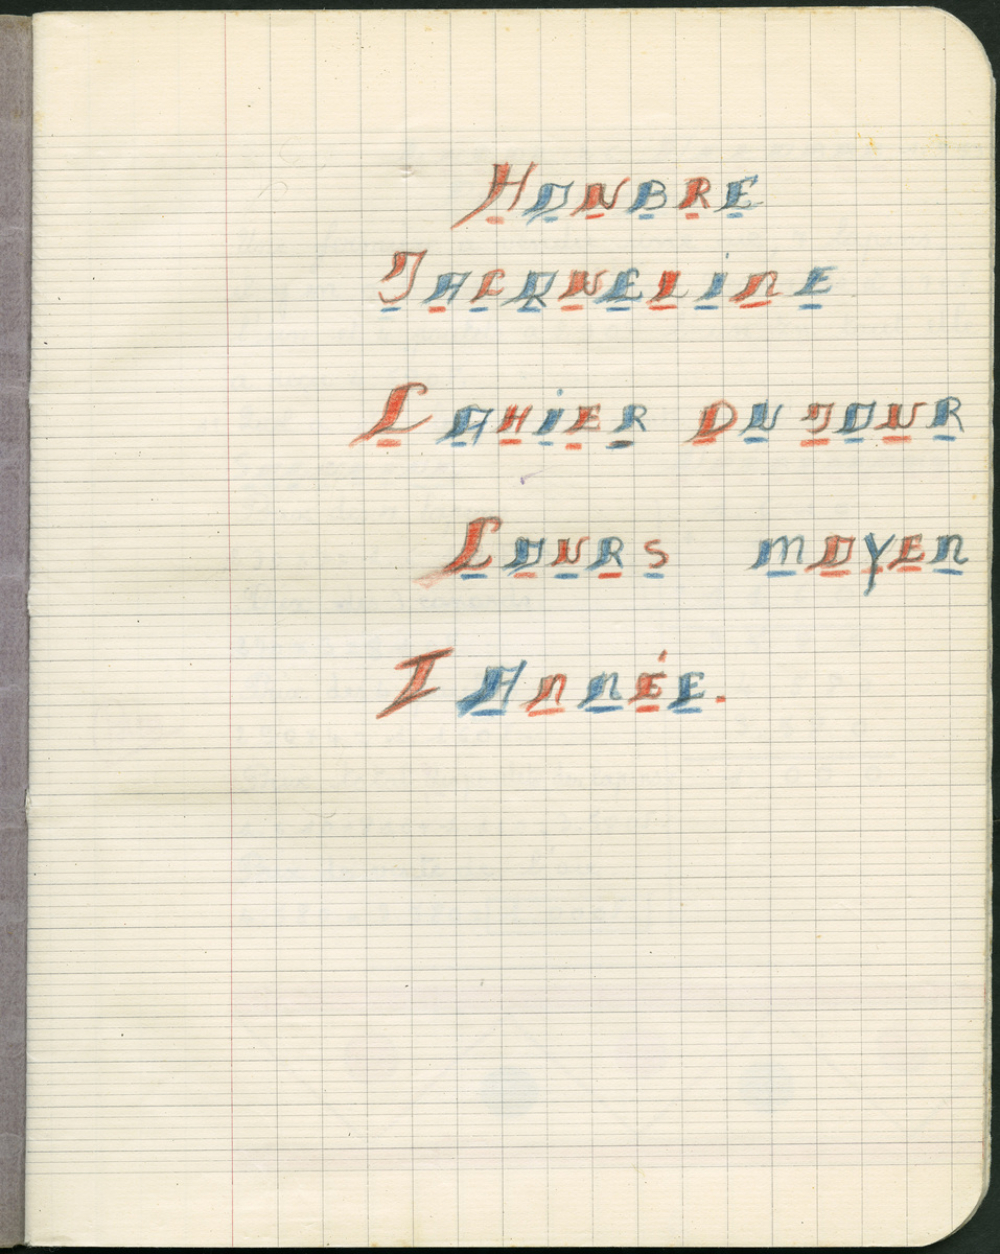 HONBRE
JACQUELINE
CAHIER DU JOUR
COURS MOYEN
I ANNÉE.